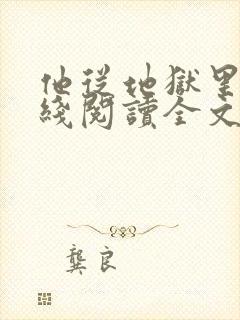 他從地獄里
綫閱讀全文
龔良